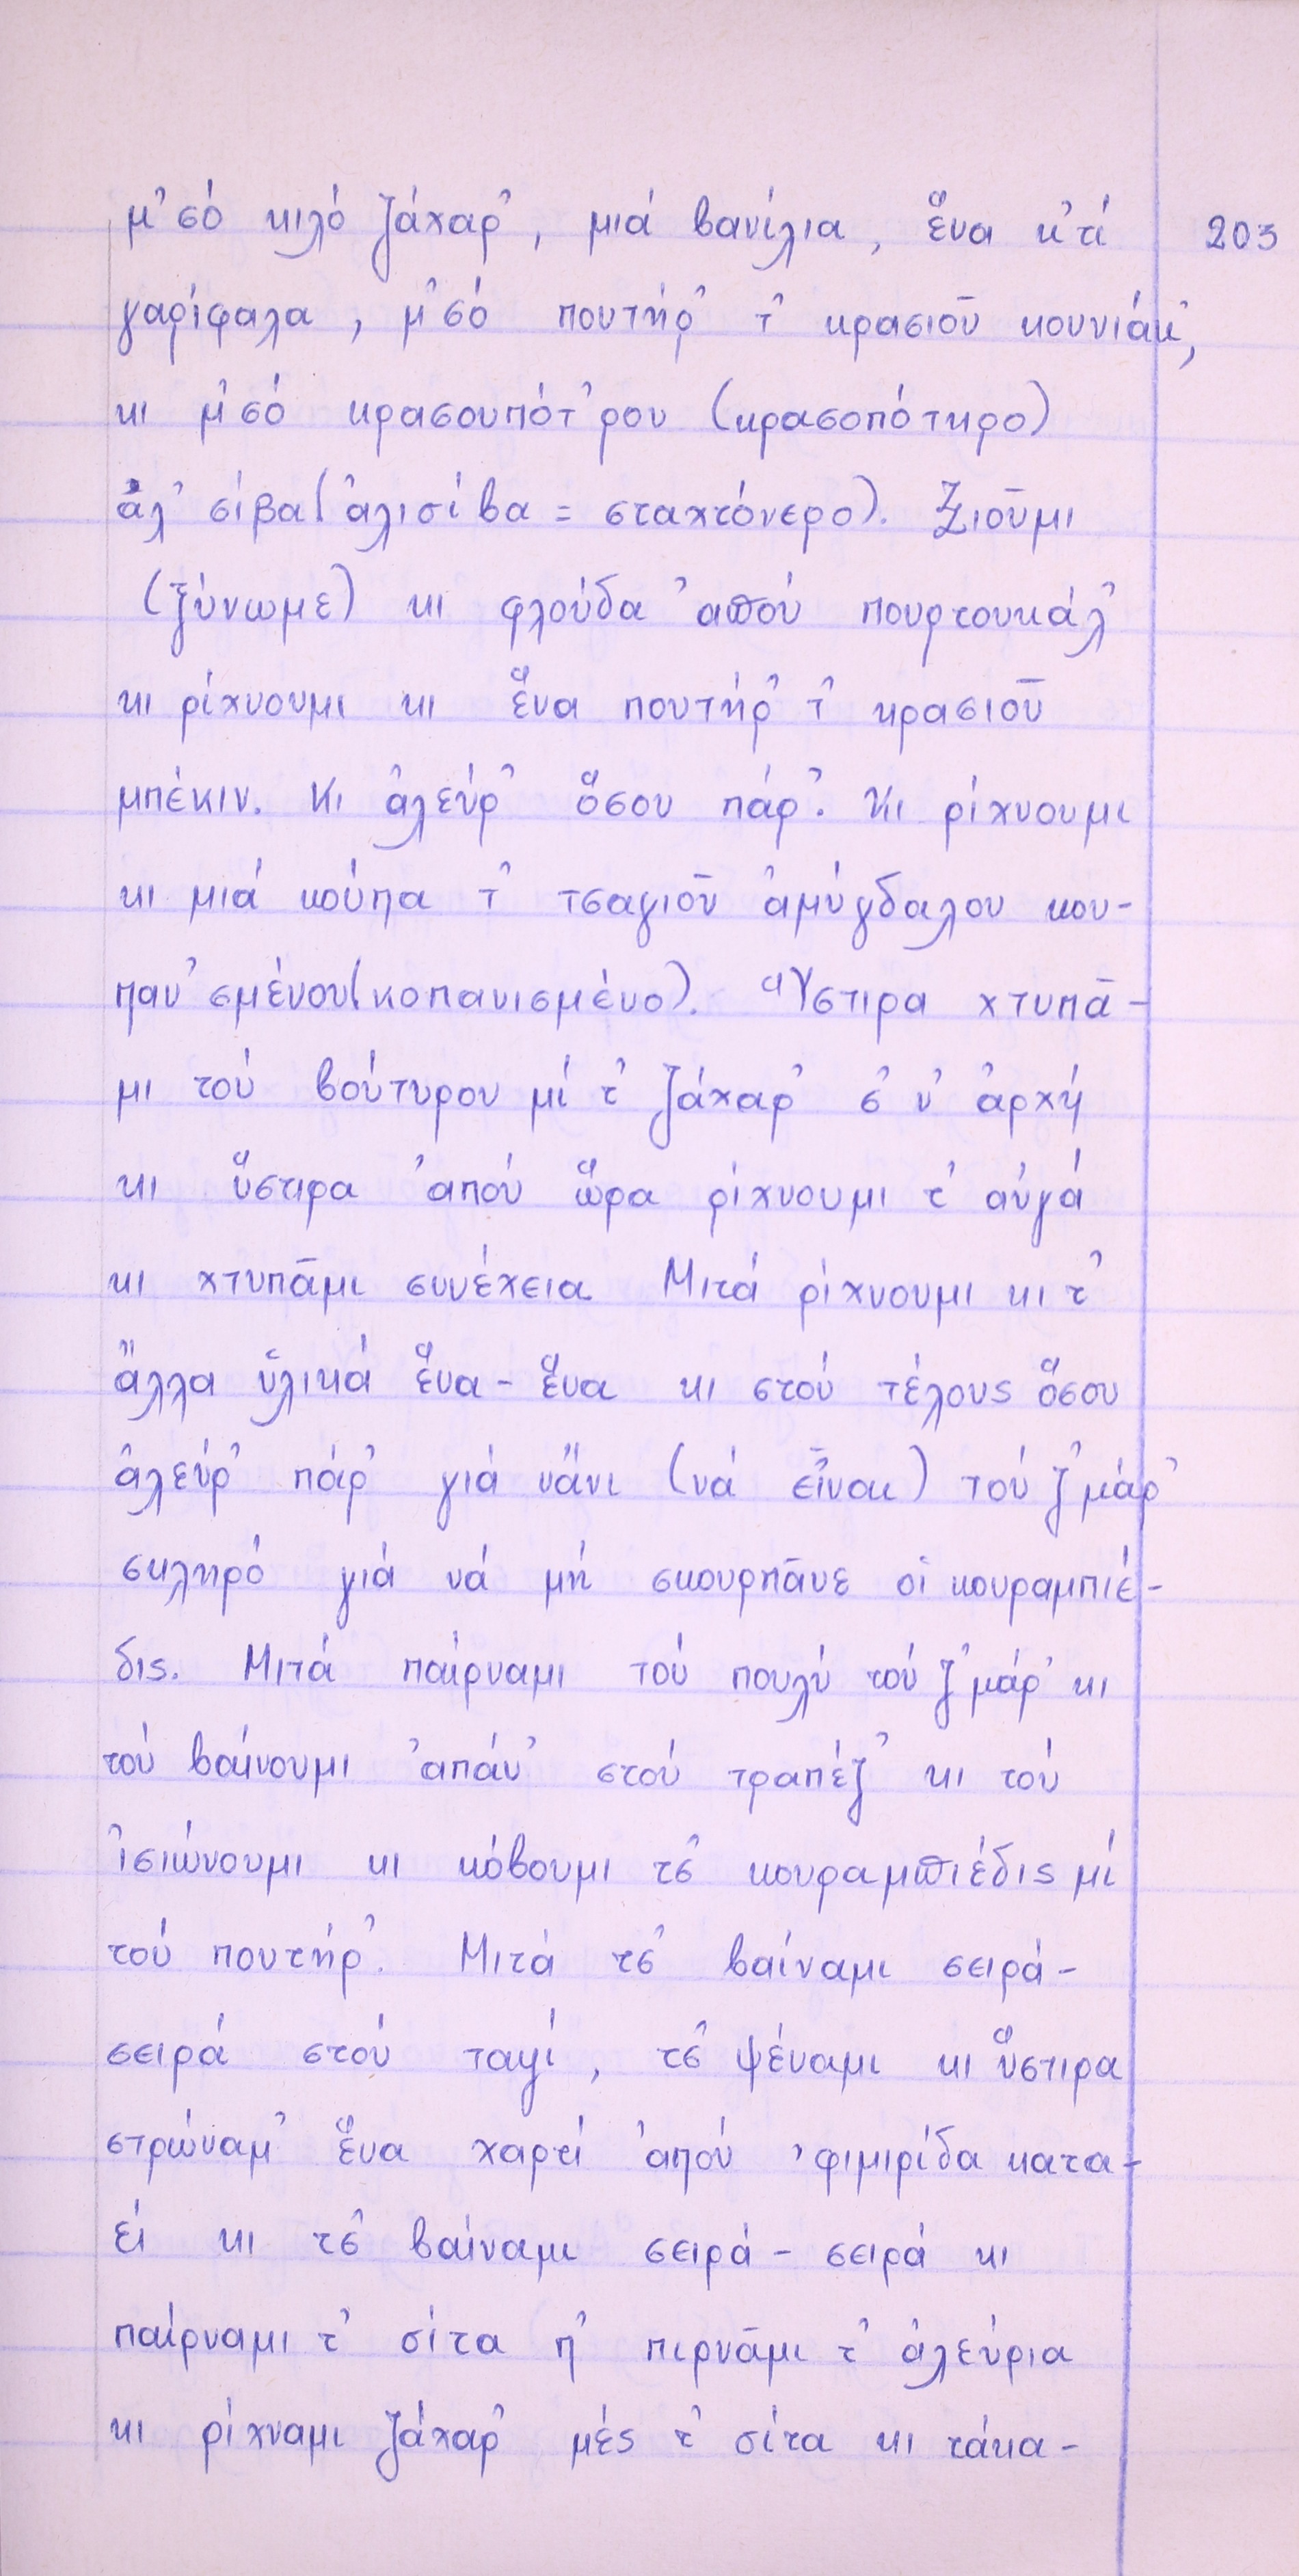 μ᾿σό κιλό ζάχαρ᾿, μιά βανίλια, ἕνα κ᾿τί 203
γαρίφαλα, μ᾿σό πουτήρ᾿ τ᾿ κρασιοῦ κουνιάκ᾿,
κι μ᾿σό κρασουπότ᾿ρου (κρασοπότηρο)
ἀλ᾿σίβα (ἀλισίβα = σταχτόνερο). Ξιοῦμι
(ξύνωμε) κι φλούδα ἀπού πουρτουκάλ᾿
κι ρίχνουμι κι ἕνα πουτήρ᾿ τ᾿ κρασιοῦ
μπέκιν. Κι ἀλεύρ᾿ ὅσου πάρ᾿. Κι ρίχνουμι
κι μιά κούπα τ᾿ τσαγιοῦ ἀμύγδαλου κου-
παν᾿σμένου (κοπανισμένο). Ὕστιρα χτυπᾶ-
μι τού βούτυρου μί τ᾿ ζάχαρ᾿ σ᾿ ν᾿ ἀρχή
κι ὕστιρα ἀπού ὥρα ρίχνουμι τ᾿ αὐγά
κι χτυπᾶμι συνέχεια. Μιτά ρίχνουμι κι τ᾿
ἄλλα ὑλικά ἕνα-ἕνα κι στού τέλους ὅσου
ἀλεύρ᾿ πάρ᾿ γιά νἄνι (νά εἶναι) τού ζ᾿μάρ᾿
σκληρό γιά νά μή σκουρπᾶνε οἱ κουραμπιέ-
δις. Μιτά παίρναμι τού πουλύ τού ζ᾿μάρ᾿ κι
τού βαίνουμι ἀπάν᾿ στού τραπέζ᾿ κι τού
ἰσιώνουμι κι κόβουμι τσ᾿ κουραμπιέδις μί
τού πουτήρ᾿. Μιτά τσ᾿ βαίναμι σειρά-
σειρά στού ταψί, τσ᾿ ψέναμι κι ὕστιρα
στρώναμ᾿ ἕνα χαρτί ἀπού ᾿φιμιρίδα κατα-
εί κι τσ᾿ βαίναμι σειρά-σειρά κι
παίρναμι τ᾿ σίτα π᾿ πιρνᾶμι τ᾿ ἀλεύρια
κι ρίχναμι ζάχαρ᾿ μές τ᾿ σίτα κι τάκα-